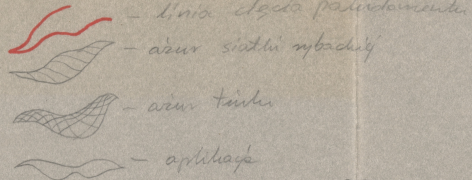 – linia cięcia paludamentu
– ażur siatki rybackiej
– ażur tiulu
– aplikacja